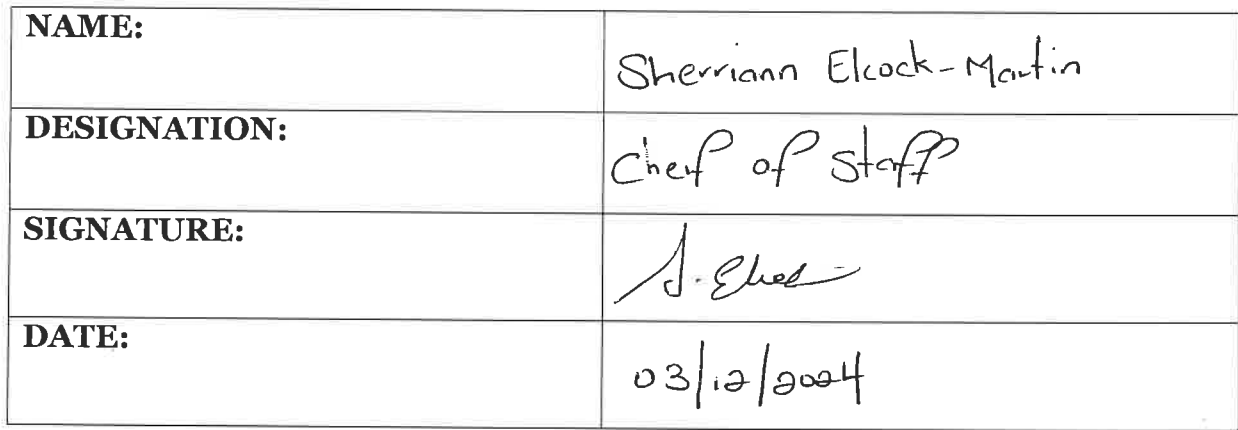 NAME:
Sherriann Elcock-Martin
DESIGNATION:
Cheif of Staff
SIGNATURE:
DATE:
03/12/2024